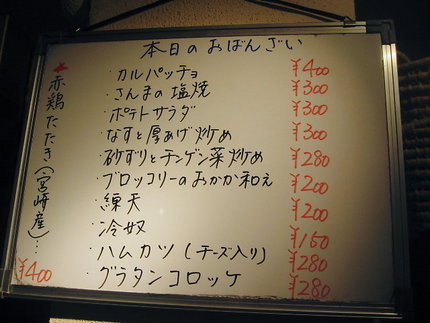 本日のおばんざい
・カルパッチョ ¥400
・さんまの塩焼 ¥300
・ポテトサラダ ¥300
・なすと厚あげ炒め ¥300
・砂ずりとチンゲン菜炒め ¥280
・ブロッコリーのおかか和え ¥200
・練天 ¥200
・冷奴 ¥150
・ハムカツ(チーズ入り) ¥280
・グラタンコロッケ ¥280
★赤鶏たたき(宮崎産)… ¥400